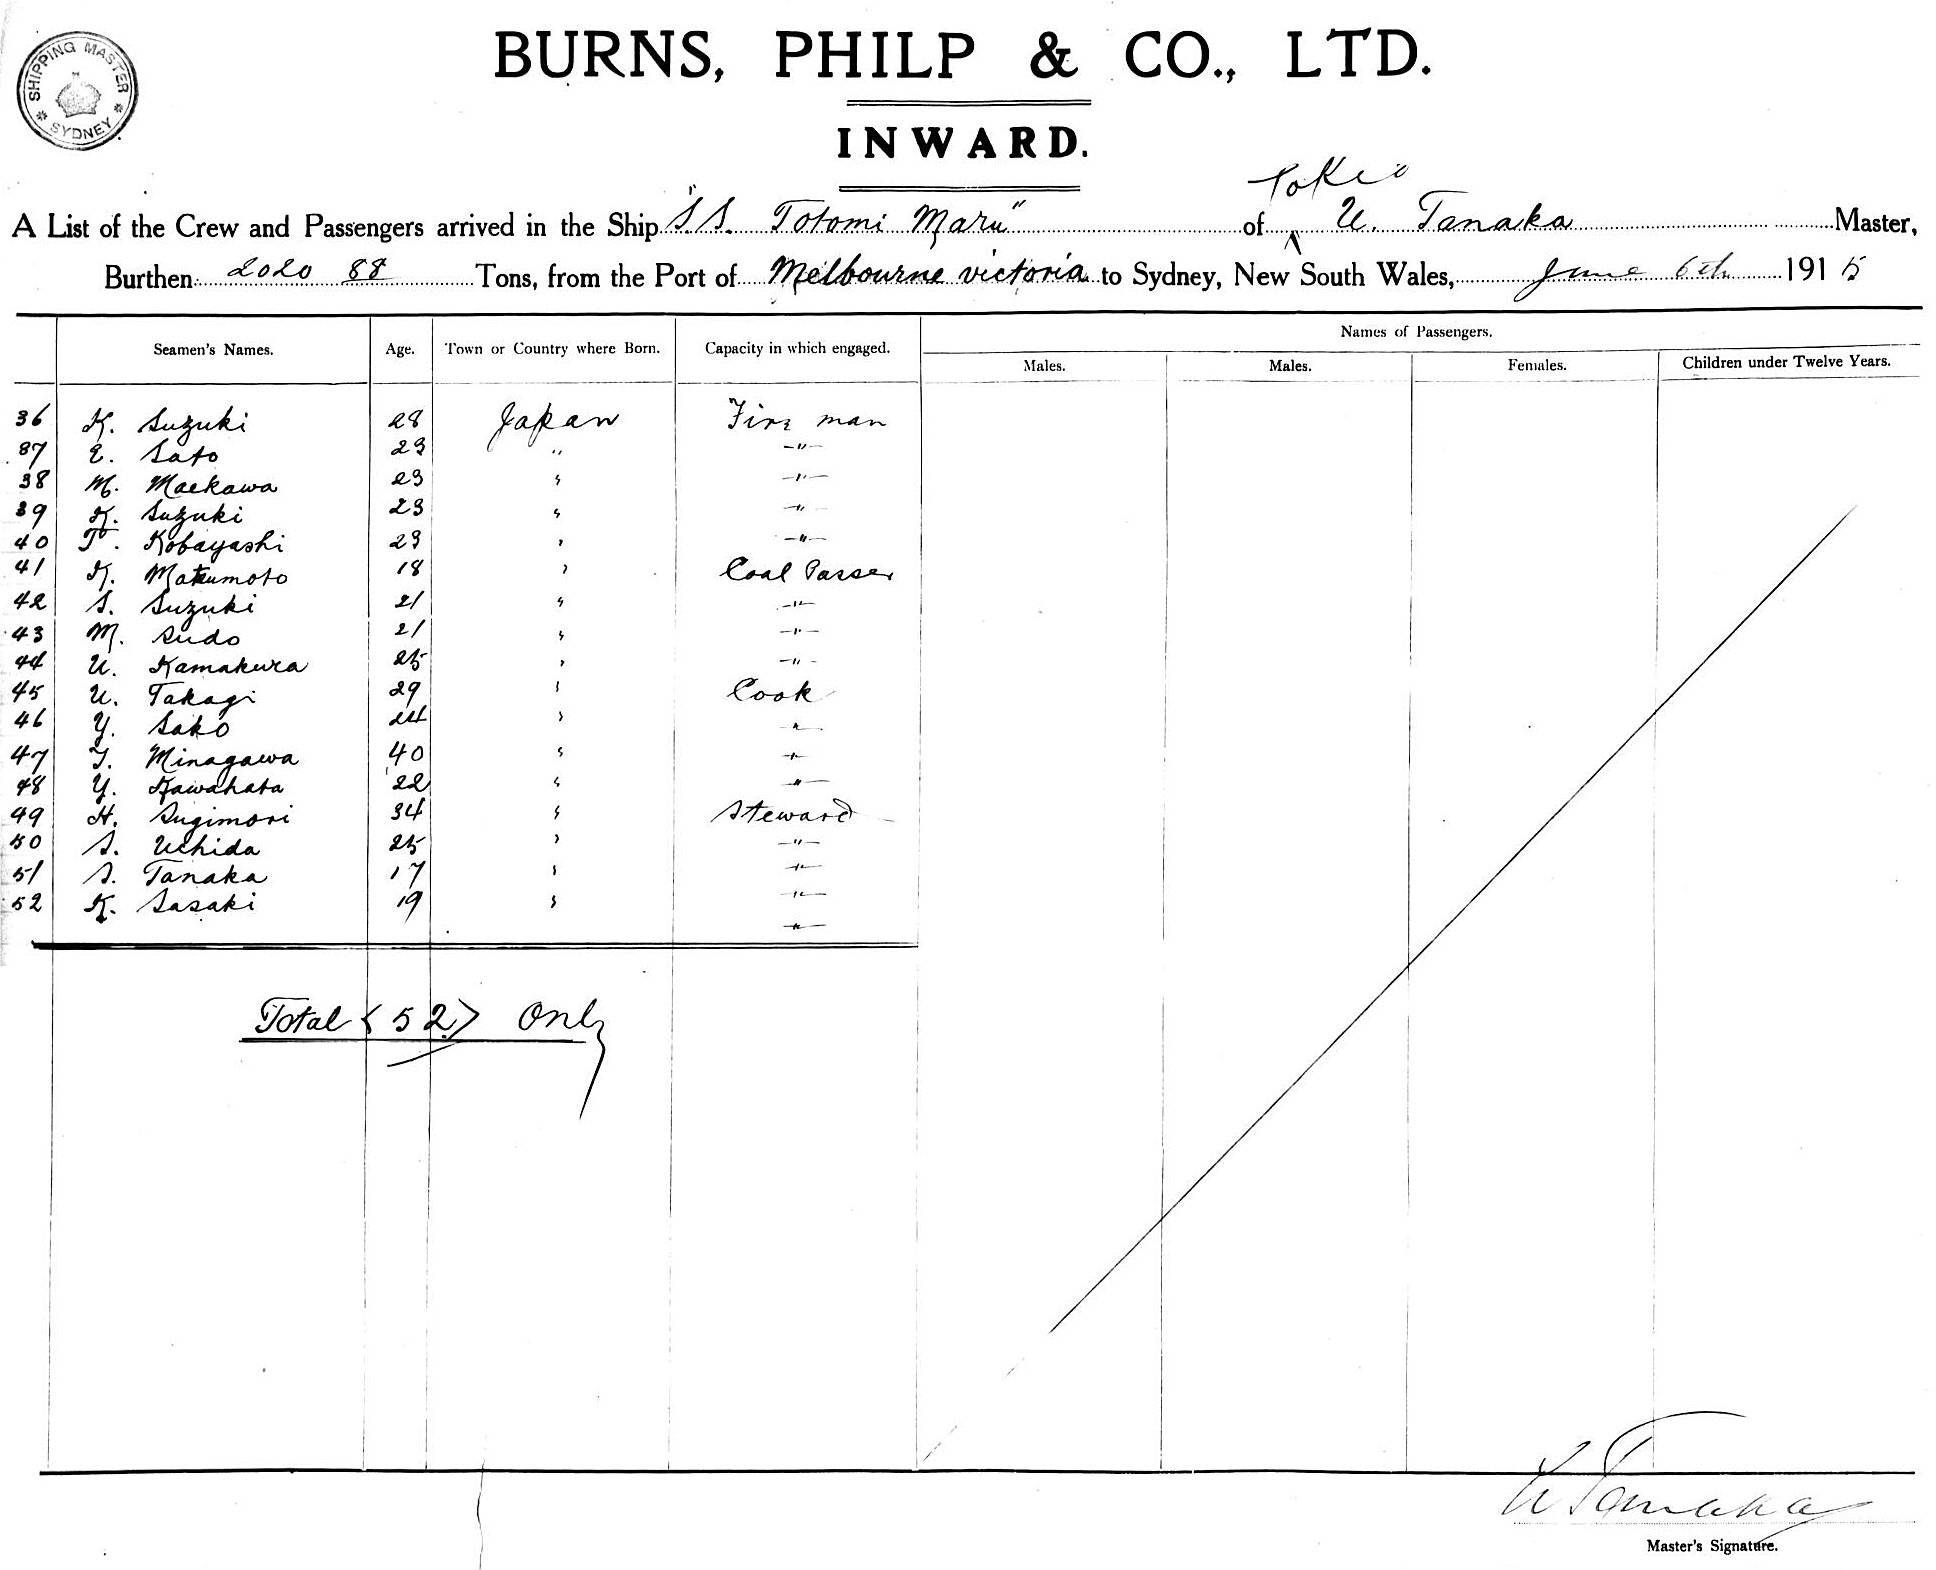 SHIPPING MASTER
* SYDNEY *
BURNS, PHILP & CO., LTD.
INWARD.
Tokio
A List of the Crew and Passengers arrived in the Ship "S.S. Totomi Maru" of U. Tanaka Master,
Burthen 2020 88 Tons, from the Port of Melbourne victoria to Sydney, New South Wales, June 6th 1915
Names of Passengers.
Seamen's Names. Age. Town or Country where Born. Capacity in which engaged. Males. Males. Females. Children under Twelve Years.
36 K. Suzuki 28 Japan Fire man
37 E. Sato 23 " -"-
38 M. Maekawa 23 " -"-
39 K. Suzuki 23 " -"-
40 T. Kobayashi 23 " -"-
41 K. Matsumoto 18 " Coal Passer
42 S. Suzuki 21 " -"-
43 M. Sudo 21 " -"-
44 U. Kamakura 25 " -"-
45 U. Takagi 29 " Cook
46 Y. Sako 24 " -"-
47 T. Minagawa 40 " -"-
48 Y. Kawahata 22 " -"-
49 H. Sugimori 34 " Steward
50 S. Uchida 25 " -"-
51 S. Tanaka 17 " -"-
52 K. Sasaki 19 " -"-
-"-
Total <52> Only
U Tanaka
Master's Signature.